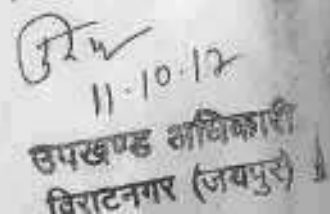 11.10.17
उपखण्ड अधिकारी
विराटनगर (जयपुर)